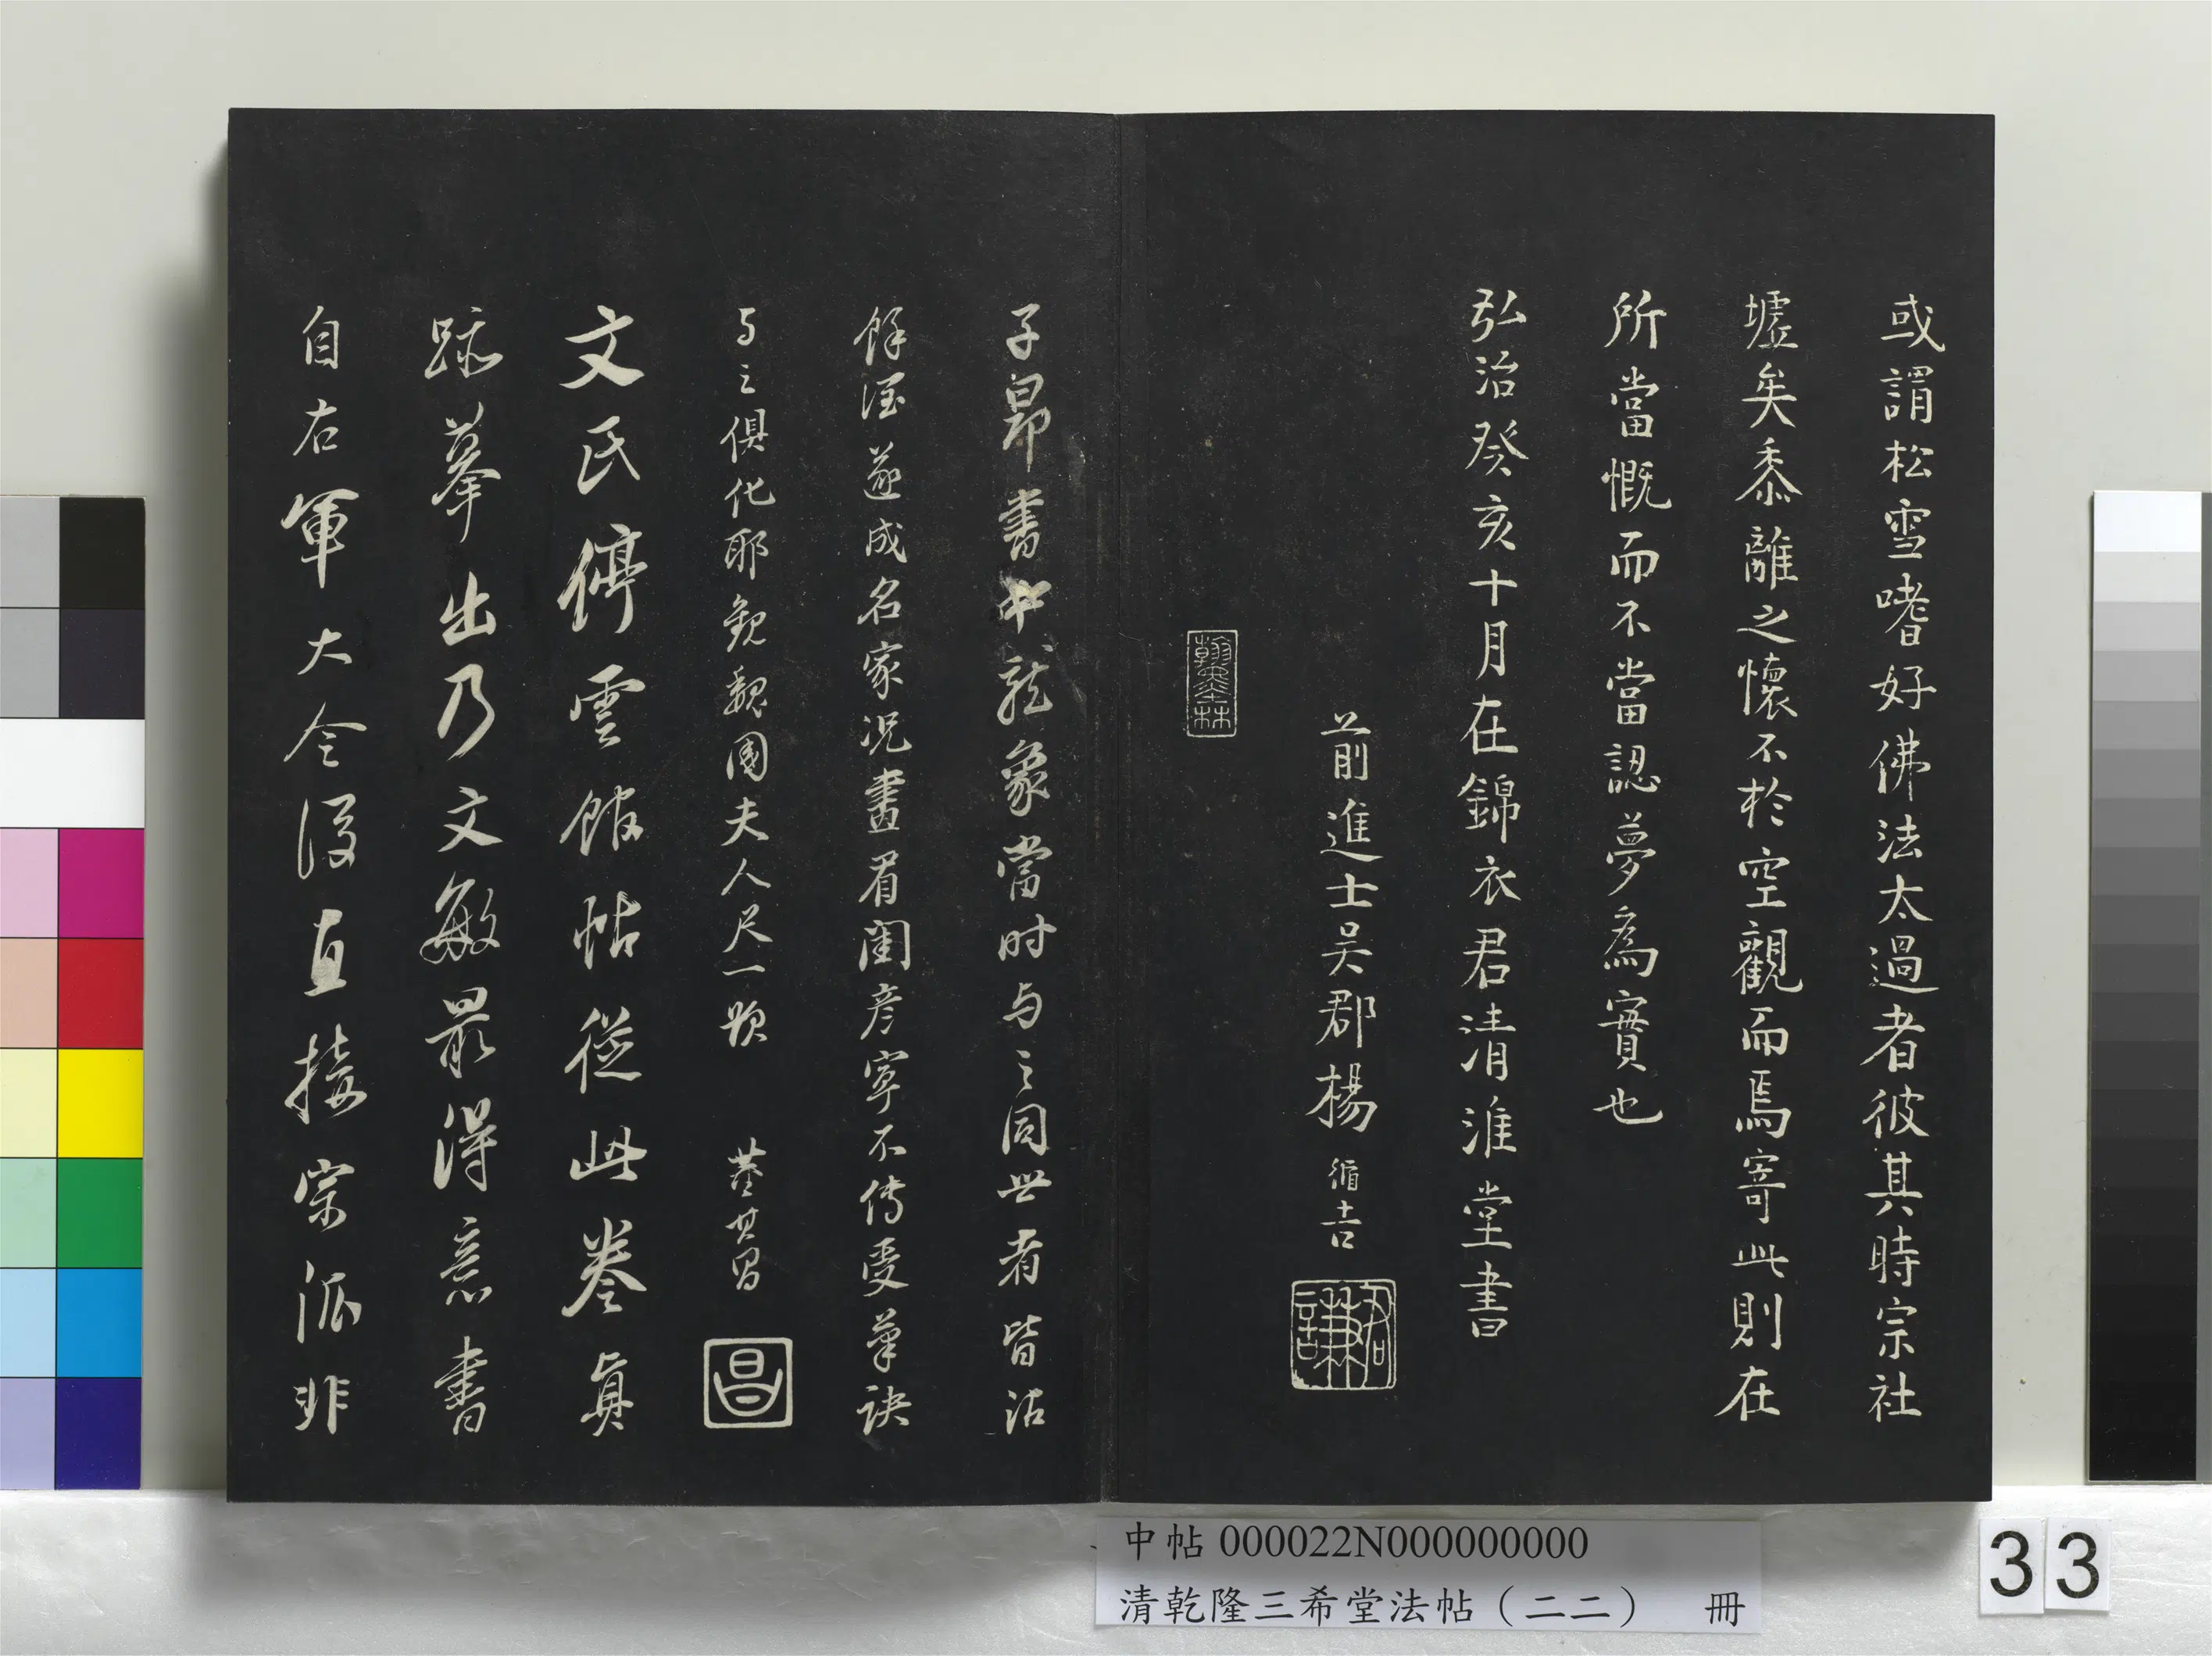 或謂松雪嗜好佛法太過者彼其時宗社
墟矣黍離之懷不於空觀而焉寄此則在
所當慨而不當認夢為實也
弘治癸亥十月在錦衣君清淮堂書
前進士吳郡楊循吉
君謙
翰墨林
子昂書中龍象當时与之同世者皆沾
餘瀝遂成名家況畫眉閨彦寧不傳受筆訣
与之俱化耶觀魏國夫人尺一題 董其昌
昌
文氏停雲館帖從此卷真
跡摹出乃文敏最得意書
自右軍大令後直接宗派非
中帖 000022N000000000
清乾隆三希堂法帖（二二） 冊
33